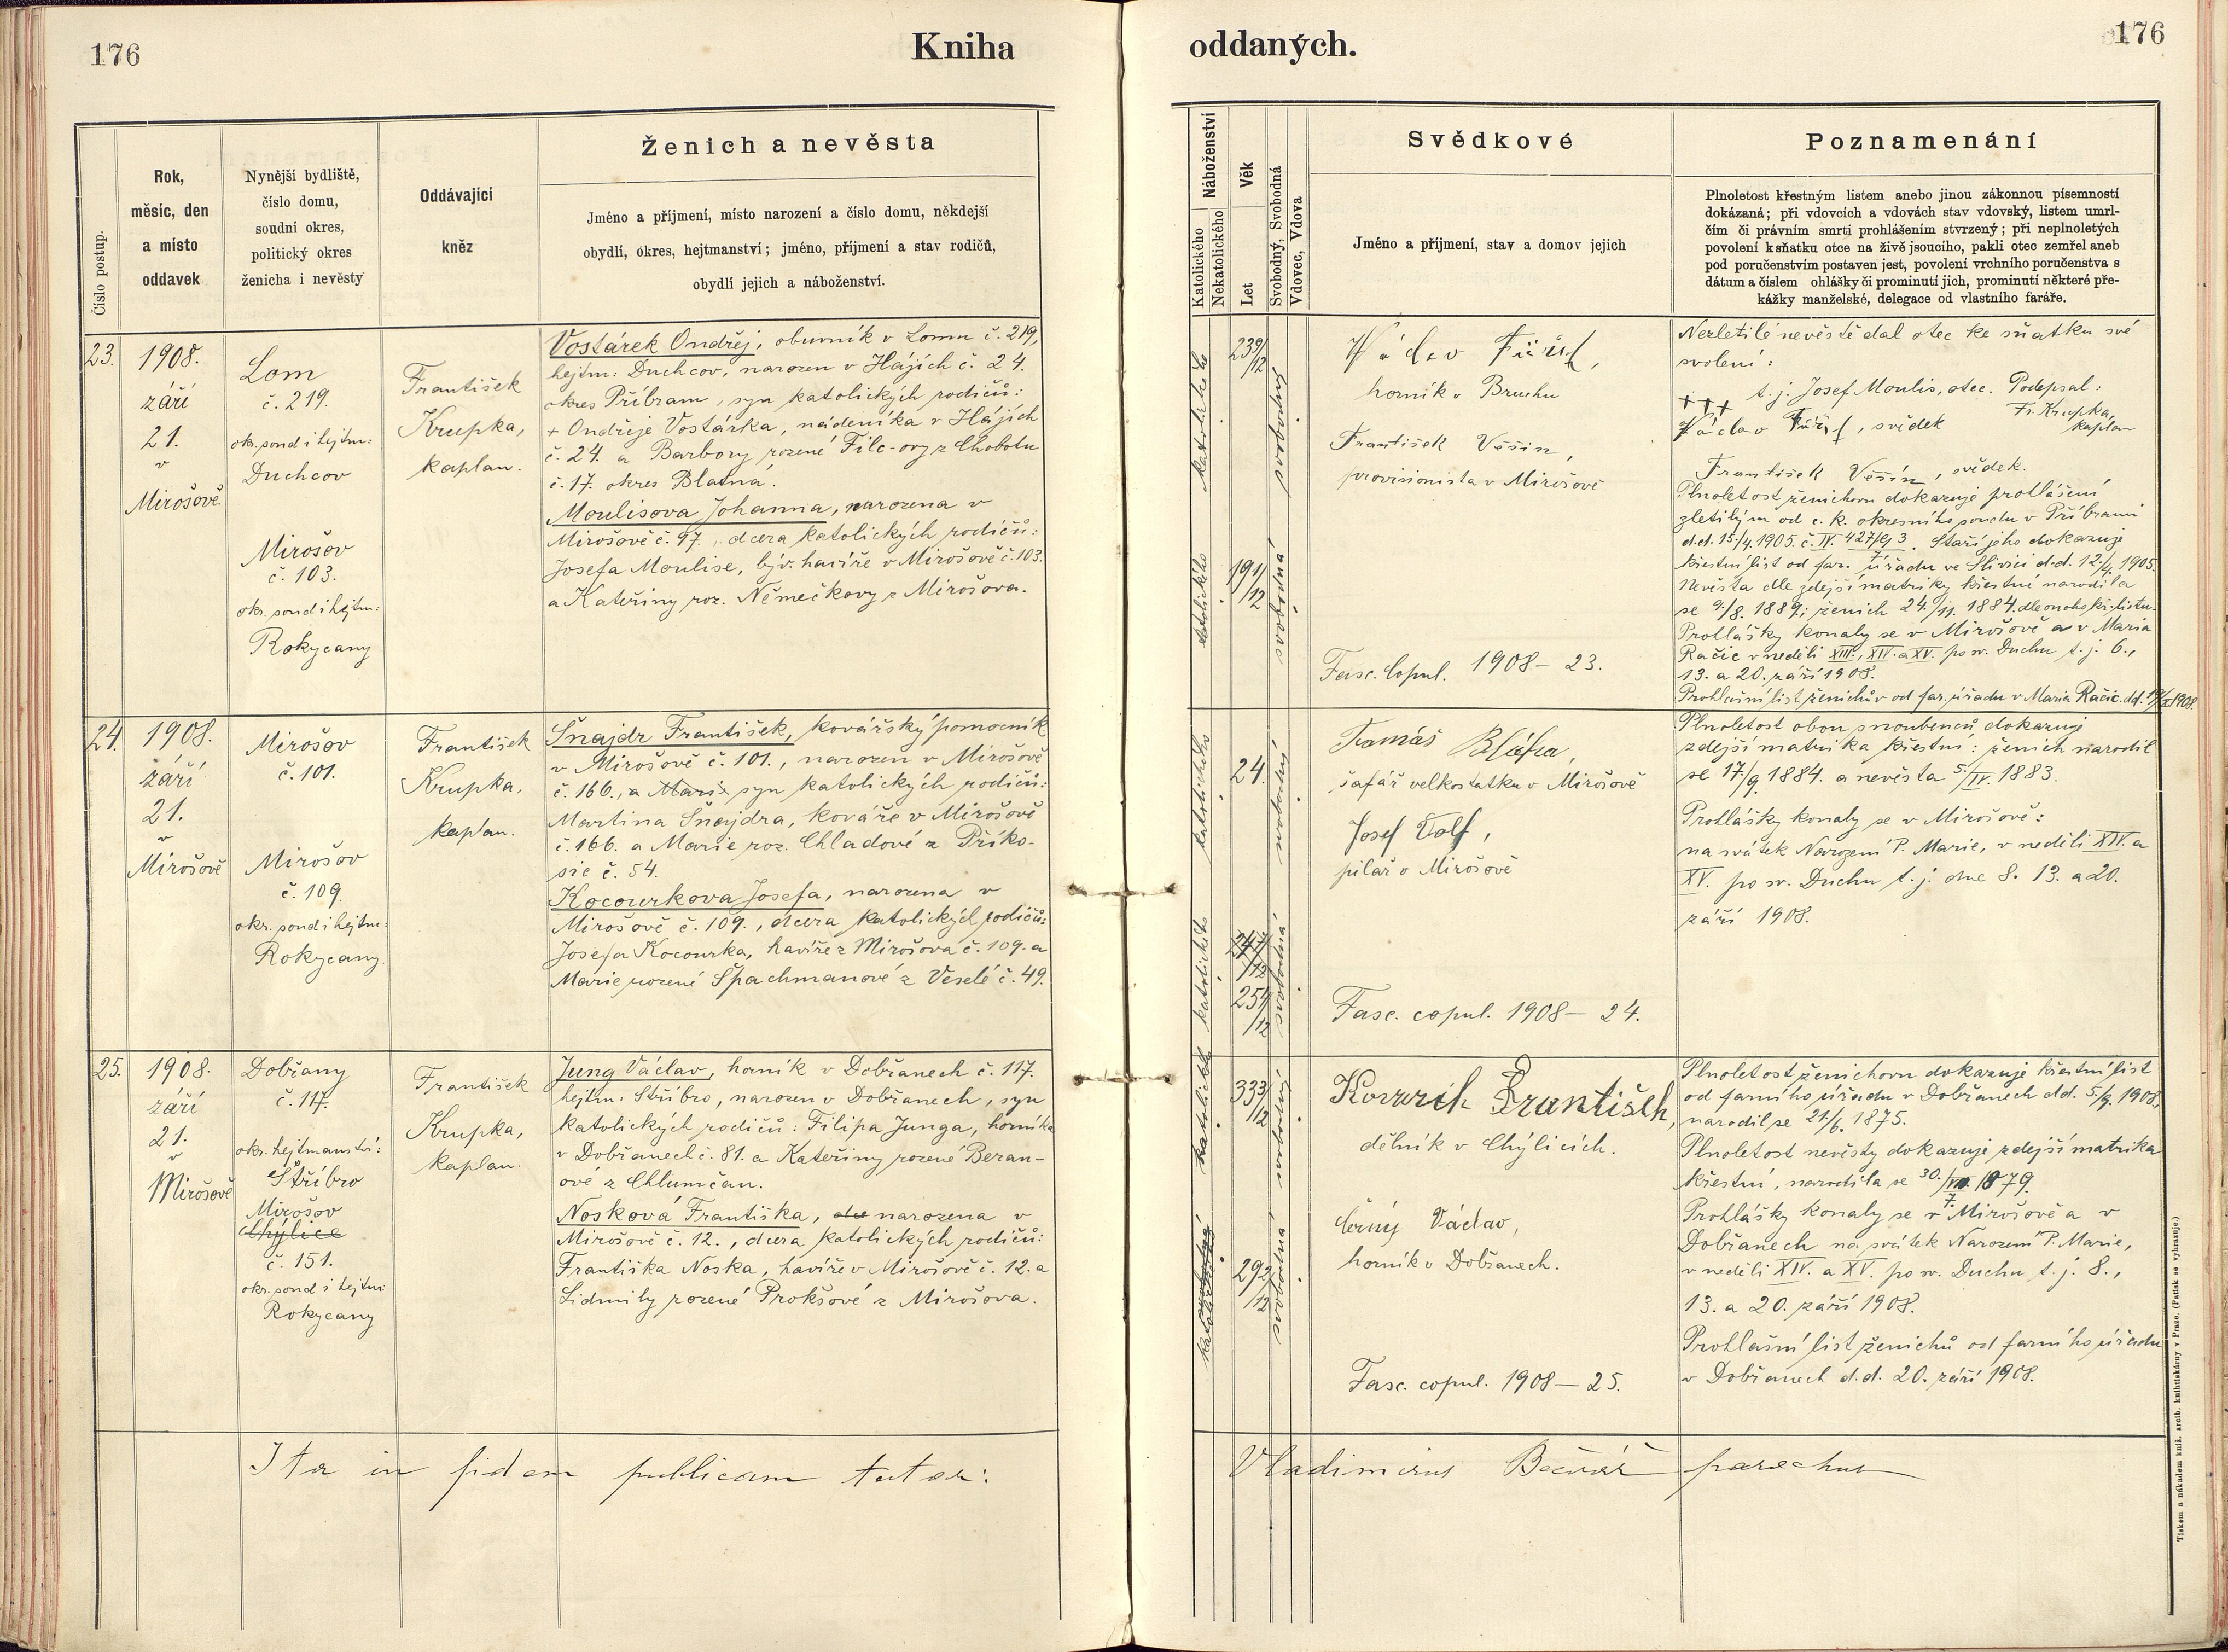 176
Kniha
oddaných.
176
Číslo postup.
Rok,
měsíc, den
a místo
oddavek
Nynější bydliště,
číslo domu,
soudní okres,
politický okres
ženicha i nevěsty
Oddávající
kněz
Ženich a nevěsta
Jméno a příjmení, místo narození a číslo domu, někdejší
obydlí, okres, hejtmanství; jméno, příjmení a stav rodičů,
obydlí jejich a náboženství.
Náboženství
Katolického
Nekatolického
Věk
Let
Svobodný, Svobodná
Vdovec, Vdova
Svědkové
Jméno a příjmení, stav a domov jejich
Poznamenání
Plnoletost křestným listem anebo jinou zákonnou písemností
dokázaná; při vdovcích a vdovách stav vdovský, listem umrl-
čím či právním smrti prohlášením stvrzený; při neplnoletých
povolení k sňatku otce na živě jsoucího, pakli otec zemřel aneb
pod poručenstvím postaven jest, povolení vrchního poručenstva s
dátum a číslem ohlášky či prominutí jich, prominutí některé pře-
kážky manželské, delegace od vlastního faráře.
23.
1908.
září
21.
v
Mirošově
Lom
č. 219.
okr. soud i hejtm:
Duchcov
Mirošov
č. 103.
okr. soud i hejtm:
Rokycany
František
Krupka,
kaplan.
Vostárek Ondřej, oburník v Lomu č. 219,
hejtm: Duchcov, narozen v Hájích č. 24.
okres Příbram, syn katolických rodičů:
+ Ondřeje Vostárka, nádeníka v Hájích
č. 24. a Barbory rozené Filc-ovy z Chobotu
č. 17. okres Blatná.
Moulisova Johanna, narozena v
Mirošově č. 97., dcera katolických rodičů:
Josefa Moulise, býv. havíře v Mirošově č. 103.
a Kateřiny roz. Němečkovy z Mirošova.
katolického
23 9/12
svobodný
katolického
19 1/12
svobodná
Václav
horník v Bruchu
František Věšín,
provisionista v Mirošově
Fasc. Copul. 1908 – 23.
Nezletilé nevěstě dal otec ke sňatku své
svolení:
+++ t.j. Josef Moulis, otec. Podepsal:
Fr. Krupka,
kaplan
Václav , svědek
František Věšín, svědek.
Plnoletost ženichovu dokazuje prohlášení
zletilým od c. k. okresního soudu v Příbrami
d.d. 15./4. 1905. č. IV. 427/9/3. Stáří jeho dokazuje
křestní list od far. úřadu ve Slivici d.d. 12/4. 1905.
Nevěsta dle zdejší matriky křestní narodila
se 9./8. 1889.; ženich 24./11. 1884. dle onoho kř. listu.
Prohlášky konaly se v Mirošově a v Maria
Račic v neděli XIII., XIV. a XV. po sv. Duchu t. j. 6.,
13. a 20. září 1908.
Prohlašní list ženichův od far. úřadu v Maria Račic. dd. 1908.
24.
1908.
září
21.
v
Mirošově
Mirošov
č. 101.
Mirošov
č. 109.
okr. soud i hejtm:
Rokycany.
František
Krupka,
kaplan.
Šnajdr František, kovářský pomocník
v Mirošově č. 101., narozen v Mirošově
č. 166., a Marie syn katolických rodičů:
Martina Šnajdra, kováře v Mirošově
č. 166. a Marie roz. Chladové z Příko-
sic č. 54.
Kocourkova Josefa, narozena v
Mirošově č. 109., dcera katolických rodičů:
Josefa Kocourka, havíře z Mirošova č. 109. a
Marie rozené Špachmanové z Veselé č. 49.
katolického
24.
svobodný
katolického
24 7/12
25 4/12
svobodná
Tomáš Bláha,
šafář velkostatku v Mirošově
Josef Volf,
pilař v Mirošově
Fasc. copul. 1908 – 24.
Plnoletost obou snoubenců dokazuje
zdejší matrika křestní: ženich narodil
se 17./9 1884. a nevěsta 5./IV. 1883.
Prohlášky konaly se v Mirošově:
na svátek Narození P. Marie, v neděli XIV. a
XV. po sv. Duchu t. j. dne 8. 13. a 20.
září 1908.
25.
1908.
září
21.
v
Mirošově
Dobřany
č. 117.
okr. hejtmanství:
Stříbro
Mirošov
Chýlice
č. 151.
okr. soud i hejtm:
Rokycany
František
Krupka,
kaplan.
Jung Václav, horník v Dobřanech č. 117.
hejtm: Stříbro, narozen v Dobřanech, syn
katolických rodičů: Filipa Junga, horníka
v Dobřanech č. 81. a Kateřiny rozené Beran-
ové z Chlumčan.
Nosková Františka, dce narozena v
Mirošově č. 12., dcera katolických rodičů:
Františka Noska, havíře v Mirošově č. 12. a
Lidmily rozené Prokšové z Mirošova.
katolické
33 3/12
svobodný
29 2/12
svobodná
Kovařík František,
dělník v Chýlicích.
Černý Václav,
horník v Dobřanech.
Fasc. copul. 1908 – 25.
Plnoletost ženichovu dokazuje křestní list
od farního úřadu v Dobřanech dd. 5./9. 1908,
narodil se 21./6. 1875.
Plnoletost nevěsty dokazuje zdejší matrika
křestní, narodila se 30./7. 1879.
Prohlášky konaly se v Mirošově a v
Dobřanech na svátek Narození P. Marie,
v neděli XIV. a XV. po sv. Duchu t. j. 8.,
13. a 20. září 1908.
Prohlašní list ženichů od farního úřadu
v Dobřanech d.d. 20. září 1908.
Ita in fidem publicam testor:
Vladimirus Bečvář parochus
Tiskem a nákladem kníž. arcib. knihtiskárny v Praze. (Patisk se vyhrazuje.)